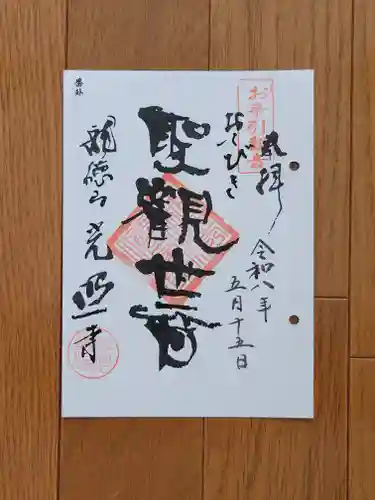 奉拝
令和八年
五月十五日
お手引観音
おてびき
聖觀世音
龍徳山光照寺